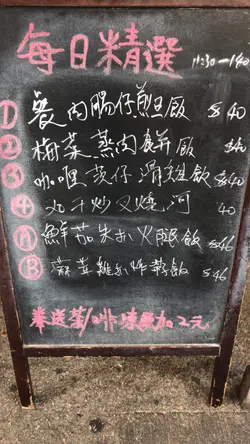 每日精選 11:30-14:0
① 肉腸仔煎旦飯 $40
② 梅菜蒸肉餅飯 $40
③ 咖喱薯仔滑雞飯 $40
④ 干炒叉燒河 40
Ⓐ 鮮茄朱扒火腿飯 $46
Ⓑ 雞扒炸蛋飯 $46
奉送茶/啡 凍飲加2元